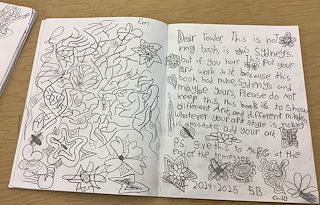 Dear Reader This is not
my book is Sydneys.
but if you have this put your
art work in it because this
book had mine, Sydenys and
maybe yours. Please do not
keep this, this book is to show
different Art, and different minds.
whatever your art style is
a mistake add your art
P.S give this to at the
end of the trimester
2024-2025 5B